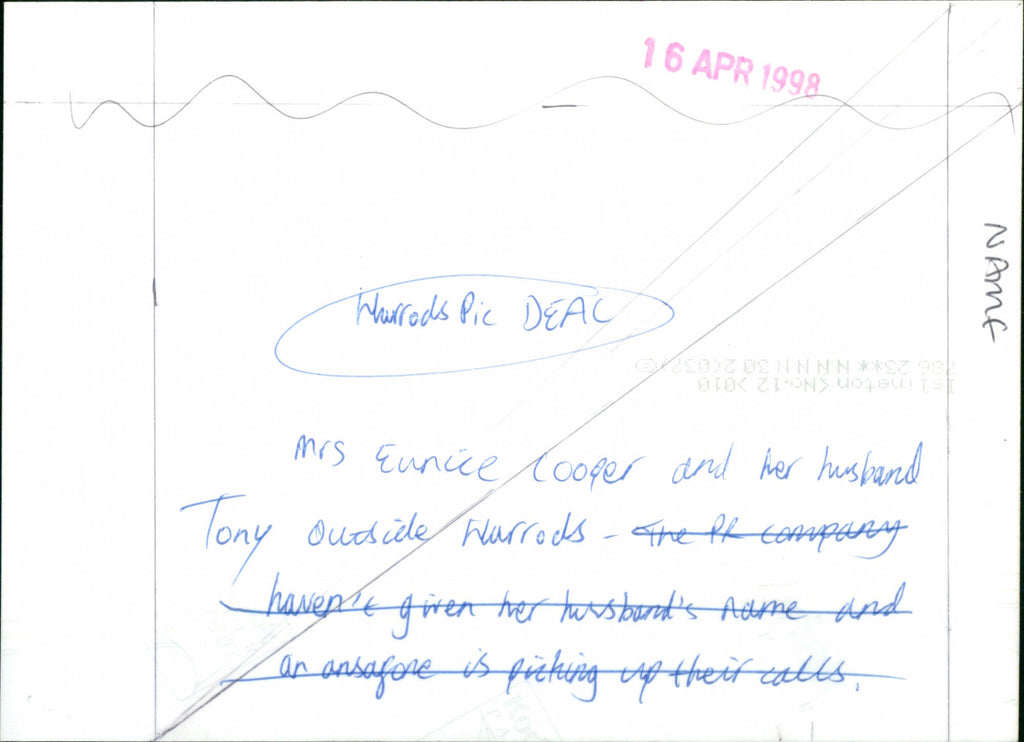 16 APR 1998
NAME
Harrods Pic DEAL
Mrs Eunice Cooper and her husband
Tony outside Harrods - The PR company
haven't given her husband's name and
an ansafone is picking up their calls.